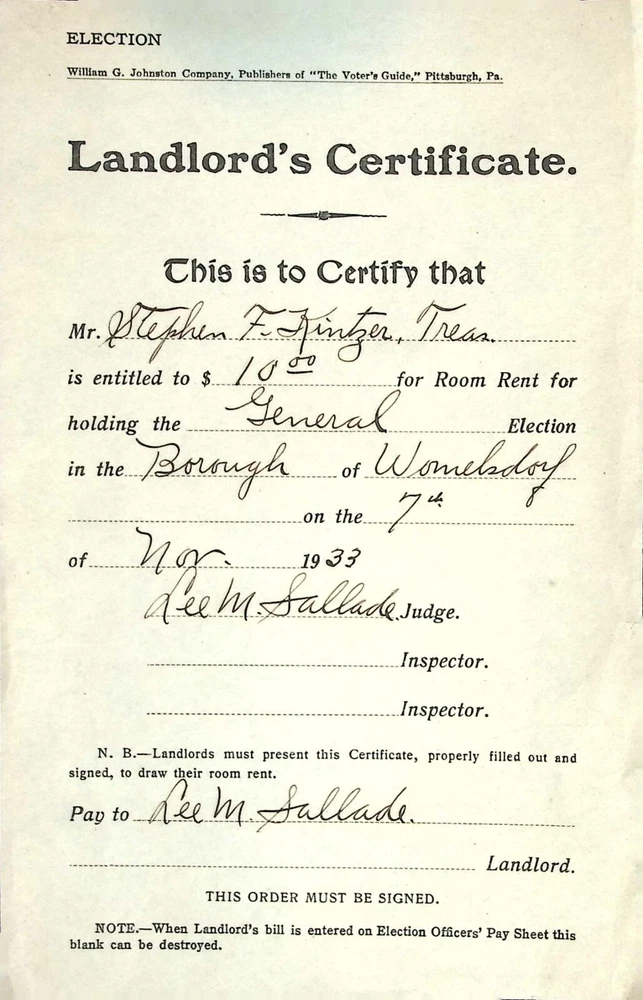 ELECTION
William G. Johnston Company, Publishers of "The Voter's Guide," Pittsburgh, Pa.
Landlord's Certificate.
This is to Certify that
Mr. Stephen F. Kintzer, Treas.
is entitled to $ 10 00 for Room Rent for
holding the General Election
in the Borough of Womelsdorf
on the 7th
of Nov. 1933
Lee M. Sallade. Judge.
Inspector.
Inspector.
N. B.—Landlords must present this Certificate, properly filled out and
signed, to draw their room rent.
Pay to Lee M. Sallade.
Landlord.
THIS ORDER MUST BE SIGNED.
NOTE.—When Landlord's bill is entered on Election Officers' Pay Sheet this
blank can be destroyed.